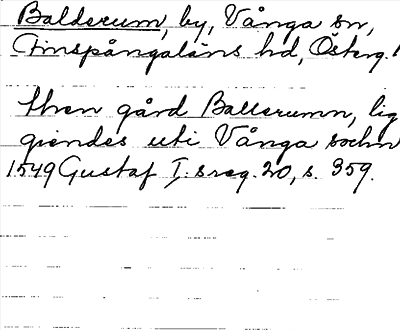 Balderum, by, Vånga sn,
Finspångaläns hd, Österg.l
then gård Ballerumn, lig
giendes uti Vånga sochn
1549 Gustaf I:s reg. 20, s. 359.